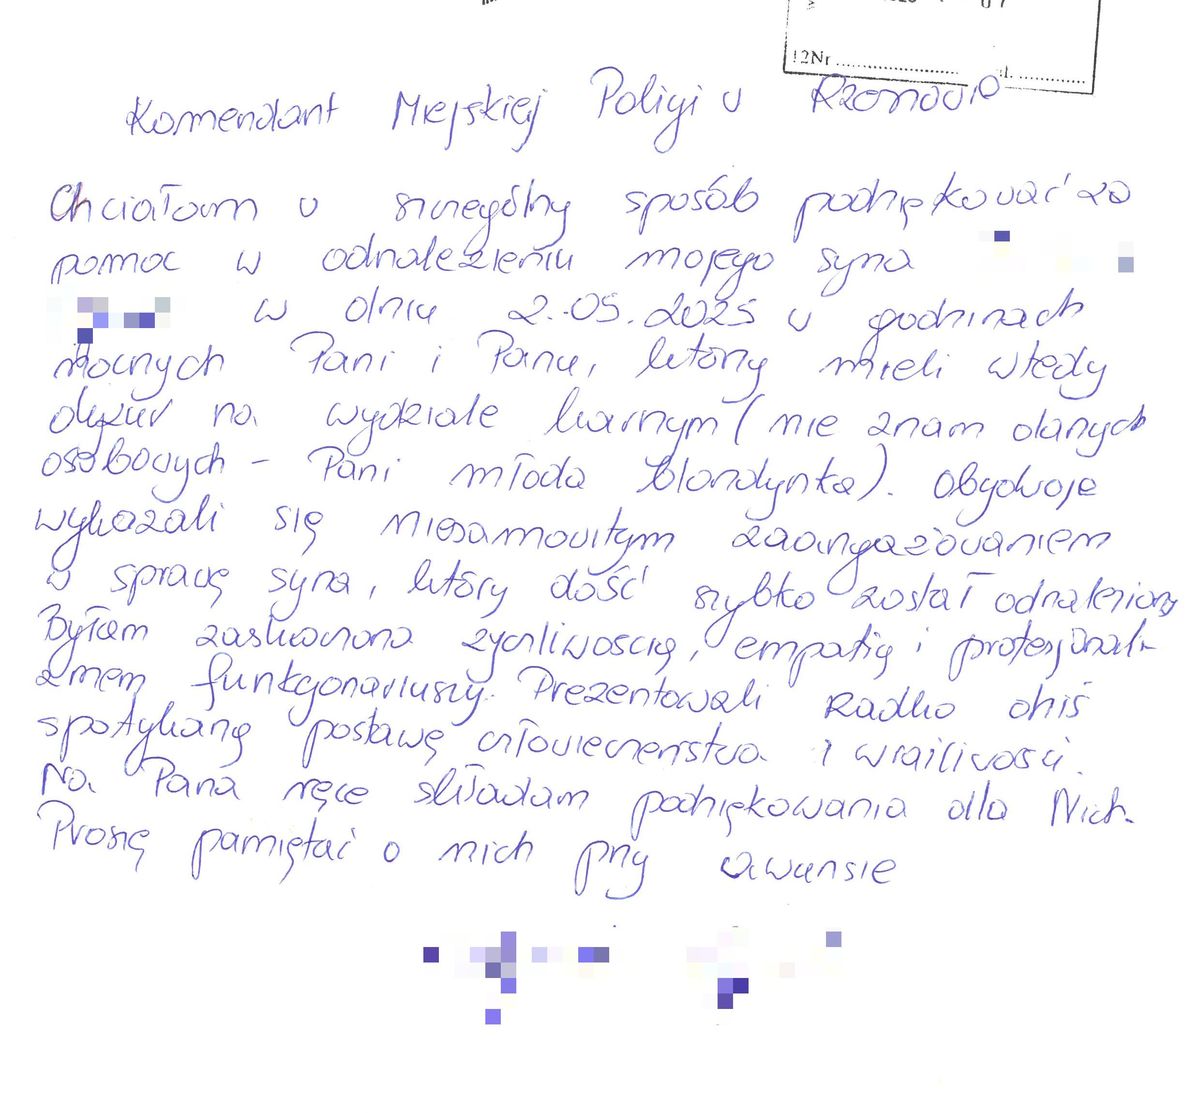 12Nr ........................ zł. ................
Komendant Miejskiej Policji w Rzeszowie
Chciałam w szczególny sposób podziękować za
pomoc w odnalezieniu mojego syna
w dniu 2.05.2025 w godzinach
nocnych Pani i Panu, którzy mieli wtedy
dyżur na wydziale karnym (nie znam danych
osobowych - Pani młoda blondynka). Obydwoje
wykazali się niesamowitym zaangażowaniem
w sprawę syna, który dość szybko został odnaleziony
Byłam zaskoczona życzliwością, empatią i profesjonali-
zmem funkcjonariuszy. Prezentowali rzadko dziś
spotykaną postawę człowieczeństwa i wrażliwości.
Na Pana ręce składam podziękowania dla Nich.
Proszę pamiętać o nich przy awansie